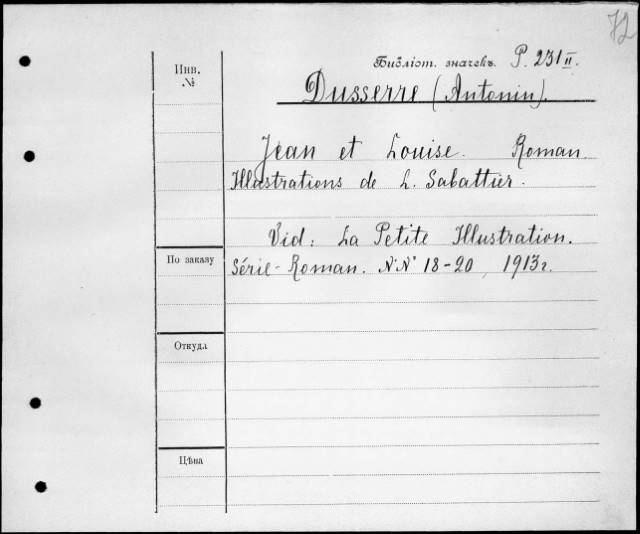 72
Библіот. значекъ P. 231 II.
Инв.
№
Dusserre (Antonin).
Jean et Louise. Roman.
Illustrations de L. Sabattier.
Vid: La Petite Illustration.
По заказу
Série-Roman. №№ 18-20, 1913г.
Откуда
Цѣна